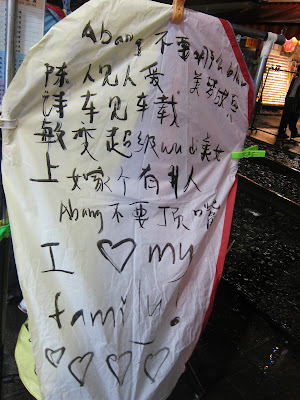 Abang 不要那么
陈 人见人爱 美梦成真
诗 车见车载
敏 变超级wudi美女
上 嫁个有钱人
Abang不要顶嘴
I ♡ my
family!
♡ ♡ ♡ ♡